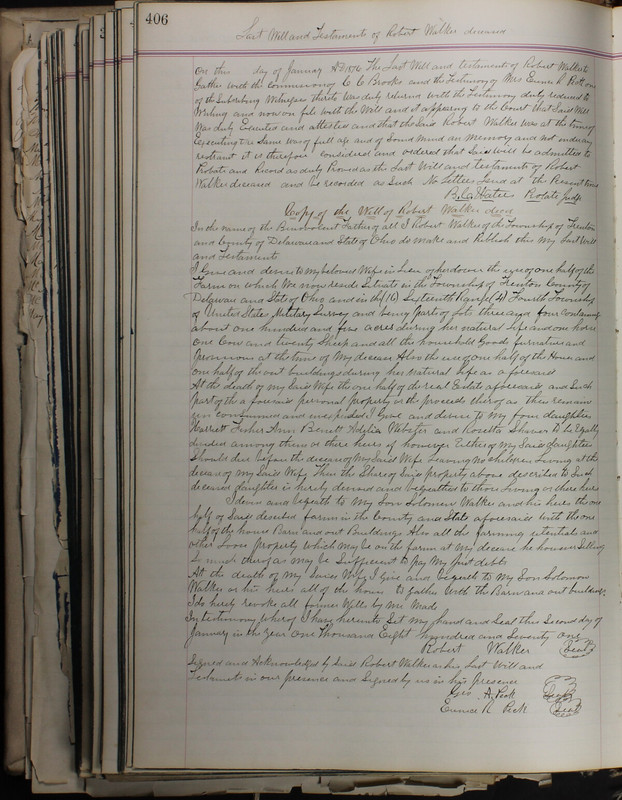 406
Last Will and Testament of Robert Walker deceased
On this day of January AD 1874 The Last Will and testament of Robert Walker
to gather with the commissions C C Brooks and the Testimony of Mrs Eunice R Peck one
of the Subscribing Witnesses thereto was duly returned with the Testimony duly reduced to
Writing and now on file with the Will and it appearing to the Court that Said Will
Was duly Executed and attested and that the Said Robert Walker was at the time of
Executing the Same was of full age and of Sound Mind an Memory and not under any
restraint it is therefore considered and ordered that Said Will be admitted to
Probate and Record as duly Proved as the Last Will and testament of Robert
Walker deceased and be recorded as Such No Letters at the Present time
B. C. Waters Probate Judge
Copy of the Will of Robert Walker decd
In the name of the Benevolent Father of all I Robert Walker of the Township of Trenton
and County of Delaware and State of Ohio do Make and Publish this My Last Will
and Testament
I Give and devise to My beloved Wife in Lieu of her dower the use of one half of the
Farm on which We now reside Situate in the Township of Trenton County of
Delaware and State of Ohio and in the (16) Sixteenth Range (4) Fourth Township
of United States Military Survey and being Part of Lots three and four Containing
about one hundred and five acres during her natural life and one horse
one Cow and twenty Sheep and all the household Goods furniture and
Provision at the time of My decease Also the use of one half of the House and
one half of the out buildings during her natural life as aforesaid
At the death of My Said Wife the one half of the real Estate aforesaid and Such
Part of the aforesaid personal property or the proceeds thereof as then remains
un consumed and unexpended I Give and devise to My four daughters
Harrett Ann Benett Adelia Webster and Rosetta to be Equally
divided among them or there heirs if however Either of My Said daughters
Should die before the decease of My Said Wife Leaving no Children Living at the
decease of My Said Wife Then the Share of Said property above described to Such
deceased daughter is hereby devised and bequeathed to those Living or there heirs
I devise and bequeath to My Son Solomon Walker and his heirs the one
half of Said described farm in the County and State aforesaid With the one
half of the house Barn and out Buildings Also all the farming utentials and
other Loose Property Which may be on the farm at My decease he however Selling
So much thereof as may be Sufficent to Pay My Just debts
At the death of My Said Wife I Give and bequeath to My Son Solomon
Walker or his heirs all of the house to gather With the Barn and out buildings
I do hereby revoke all former Wills by Me Made
In testimony Whereof I have hereunto Set My hand and Seal this Second day of
January in the Year One Thousand Eight hundred and Seventy one
Robert Walker (Seal)
Signed and Acknowledged by Said Robert Walker as his Last Will and
Testament in our presence and Signed by us in his Presence
Geo A. Peck (Seal)
Eunice R Peck (Seal)